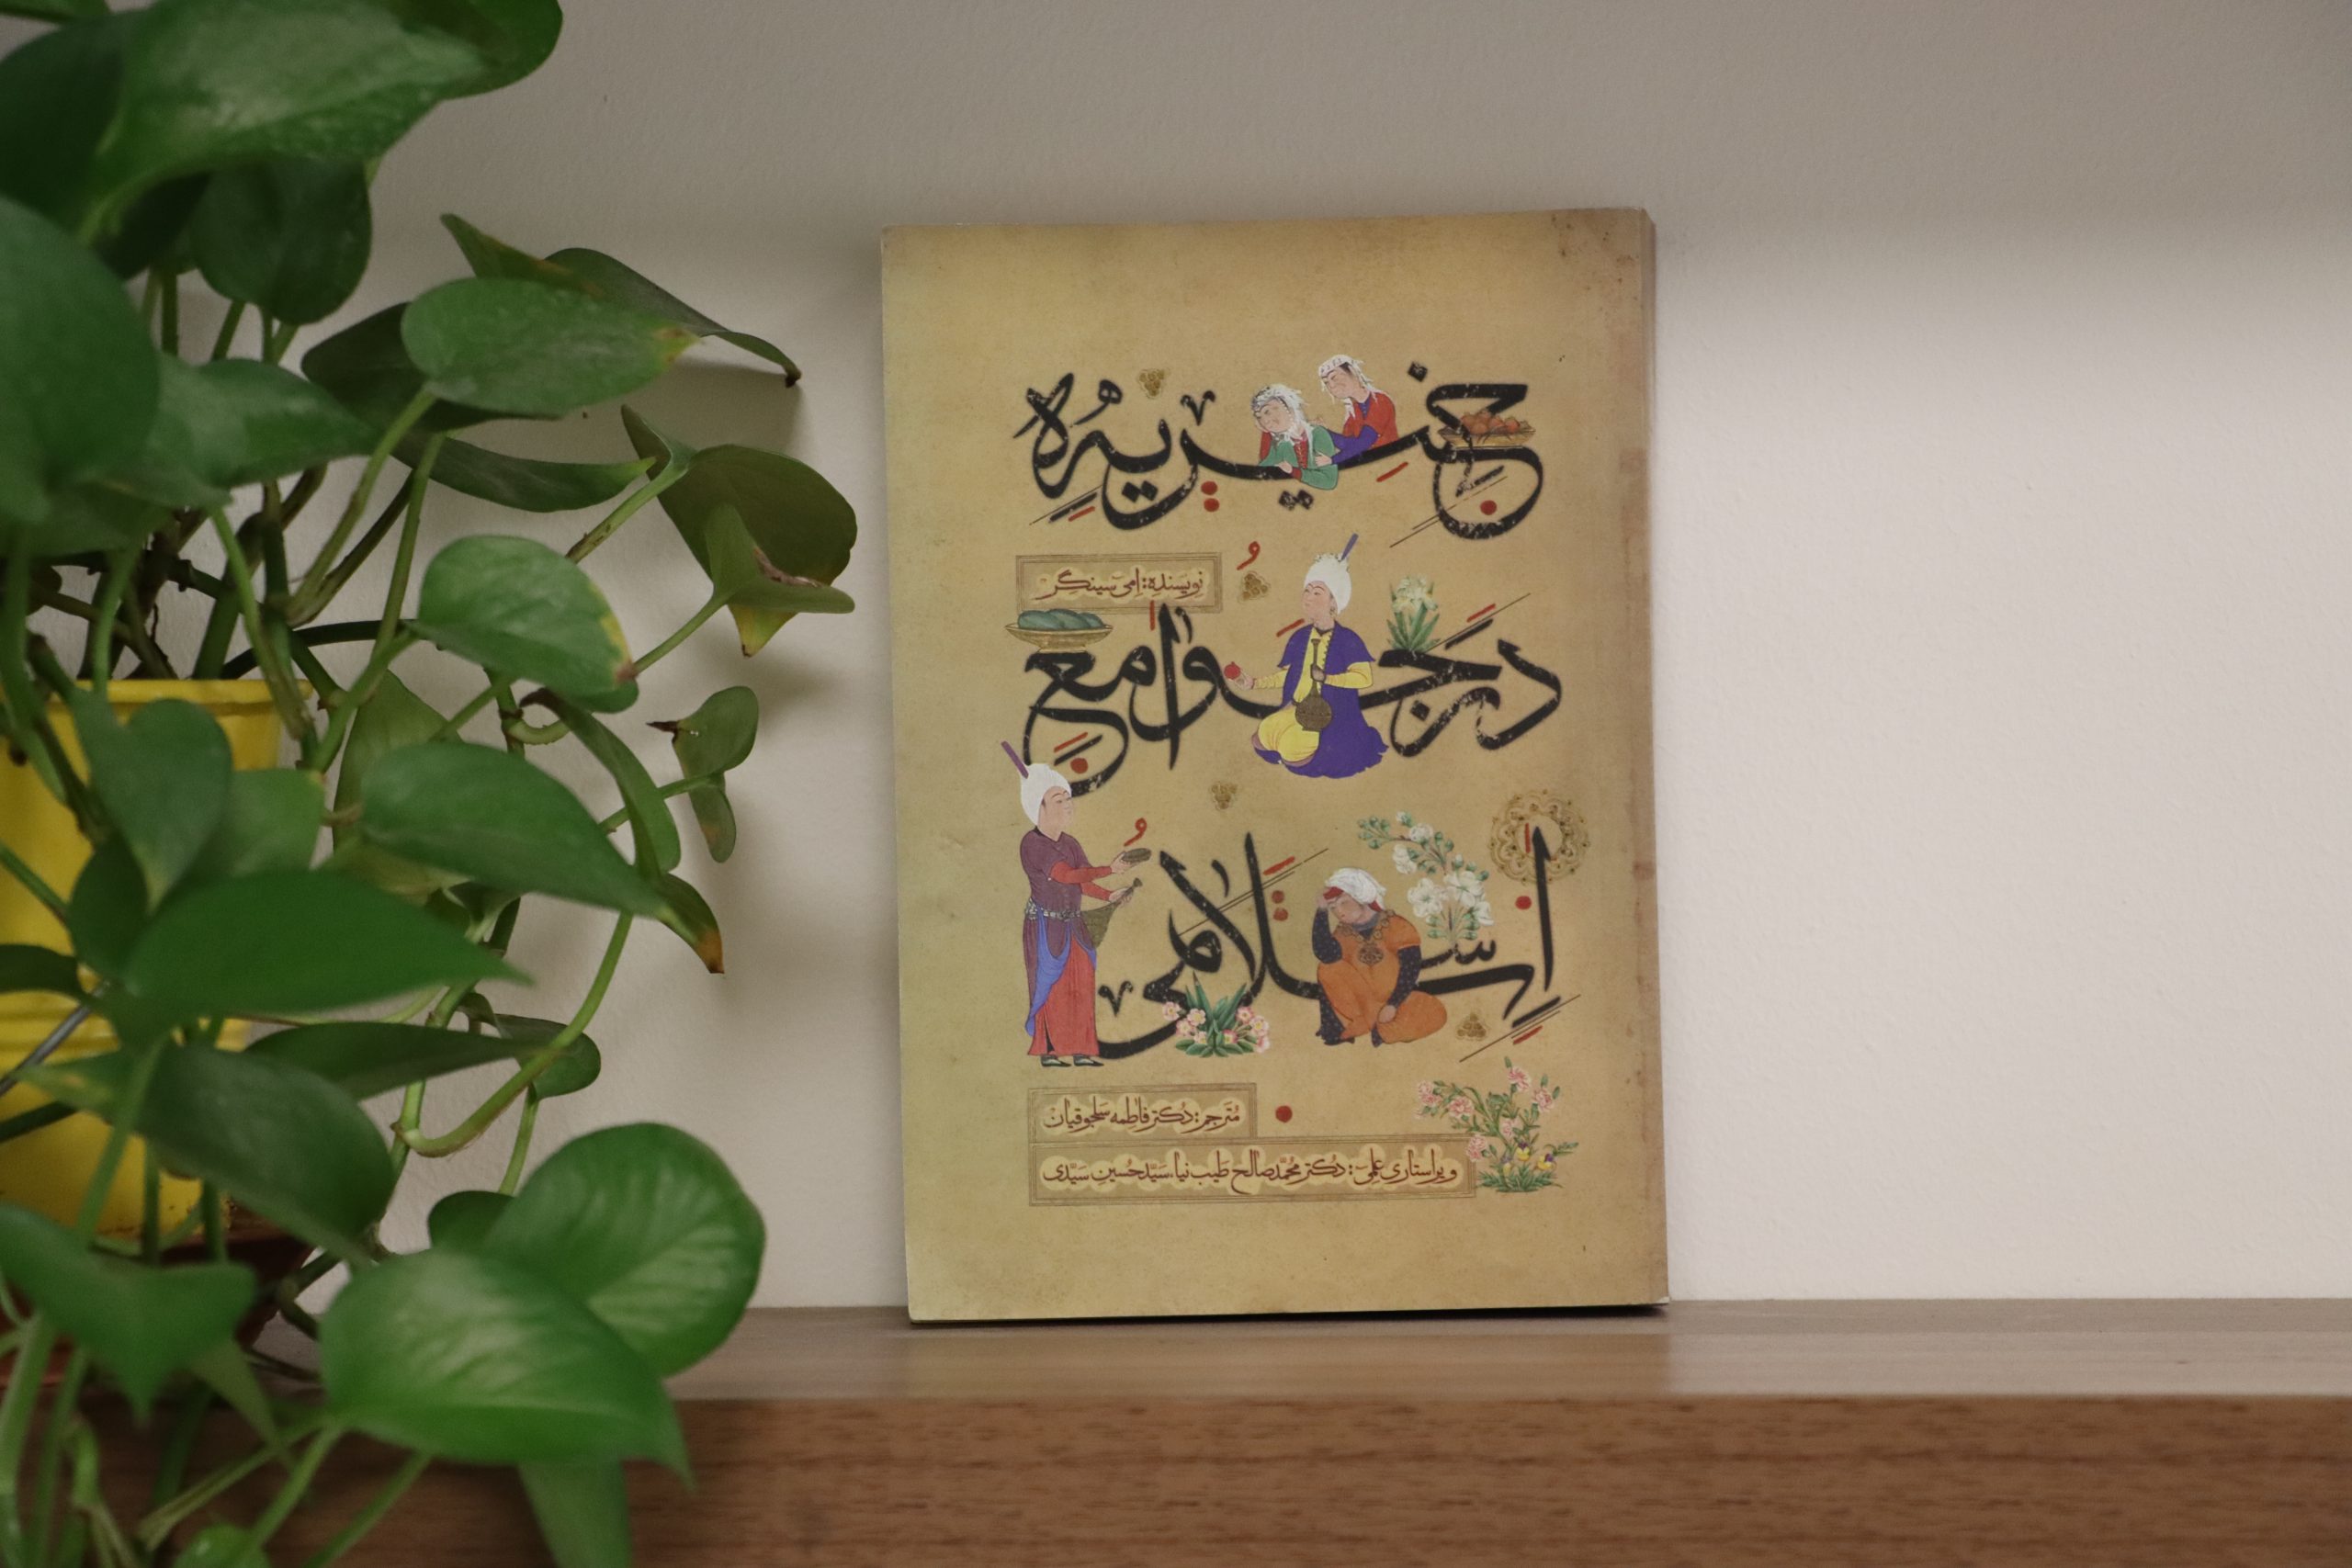 خیریه
نویسنده: امی سینگر
در جوامع
اسلامی
مترجم: دکتر فاطمه سلجوقیان
ویراستاری علمی: دکتر محمدصالح طیب نیا، سیّدحسین سیّدی